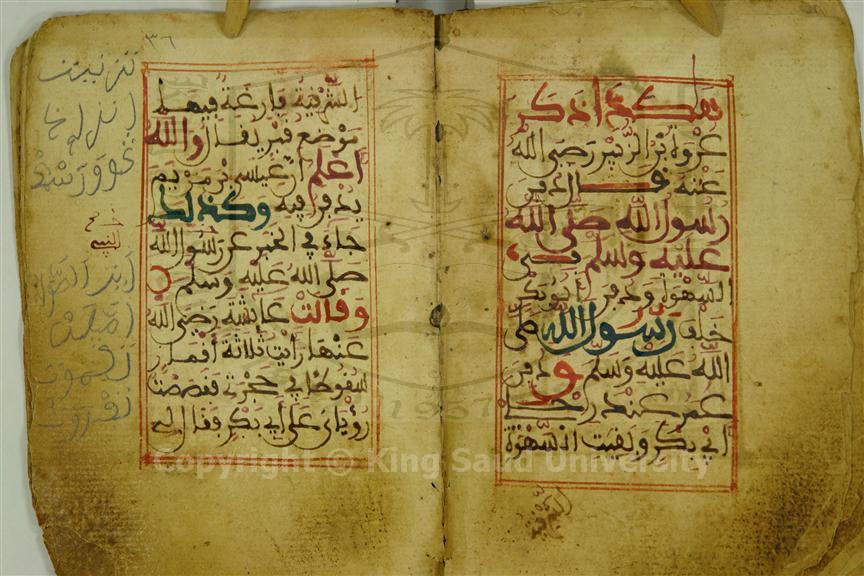 هكذا ذكر
عروة بن الزبير رضي الله
عنه قال دفن
رسول الله صلى الله
عليه وسلم في
السهوة ودفن أبو بكر
خلف رسول الله صلى
الله عليه وسلم ودفن
عمر عند رجلي
أبي بكر وبقيت السهوة
الشرقية
٣٦
الشرقية فارغة فيها
موضع قبر يقال والله
أعلم أن عيسى بن مريم
يدفن فيه وكذلك
جاء في الخبر عن رسول الله
صلى الله عليه وسلم
وقالت عائشة رضي الله
عنها رأيت ثلاثة أقمار
سقوطا في حجرتي فقصصت
رؤياي على أبي بكر فقال لي
1957
Copyright © King Saud University